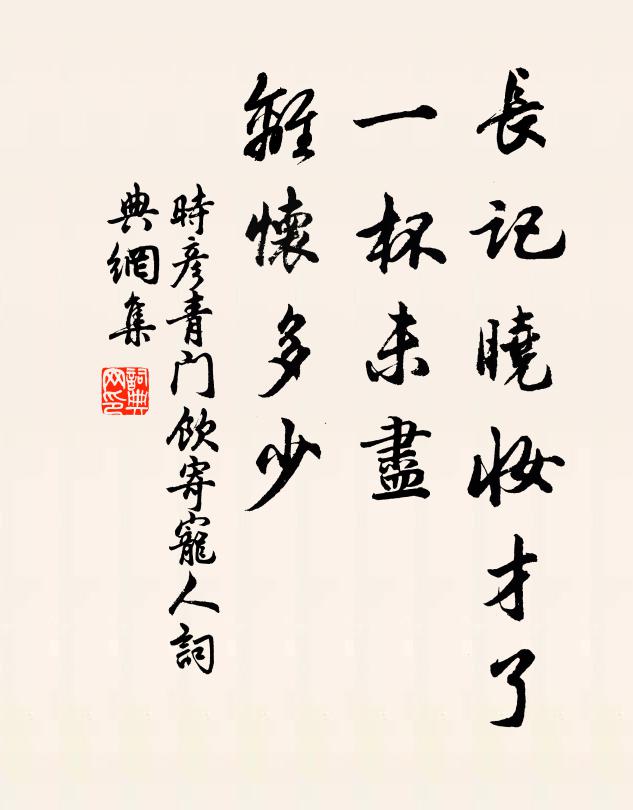 長記曉妝才了
一杯未盡
離懷多少
時彦青门飲寄寵人詞
典網集
詞典网印